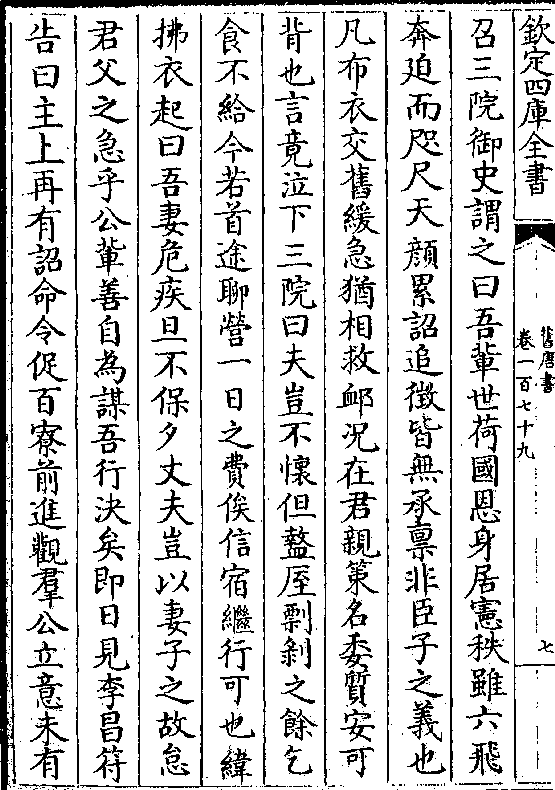 欽定四庫全書
舊唐書
卷一百七十九
七
召三院御史謂之曰吾輩世荷國恩身居憲秩雖六飛
奔廹而咫尺天顔累詔追徴皆無承禀非臣子之義也
凡布衣交舊緩急猶相救䘏况在君親策名委質安可
背也言竟泣下三院曰夫豈不懷但盩厔剽剝之餘乞
食不給今若首途聊營一日之費俟信宿繼行可也緯
拂衣起曰吾妻危疾旦不保夕丈夫豈以妻子之故怠
君父之急乎公輩善自為謀吾行決矣即日見李昌符
告曰主上再有詔命令促百寮前進觀羣公立意未有